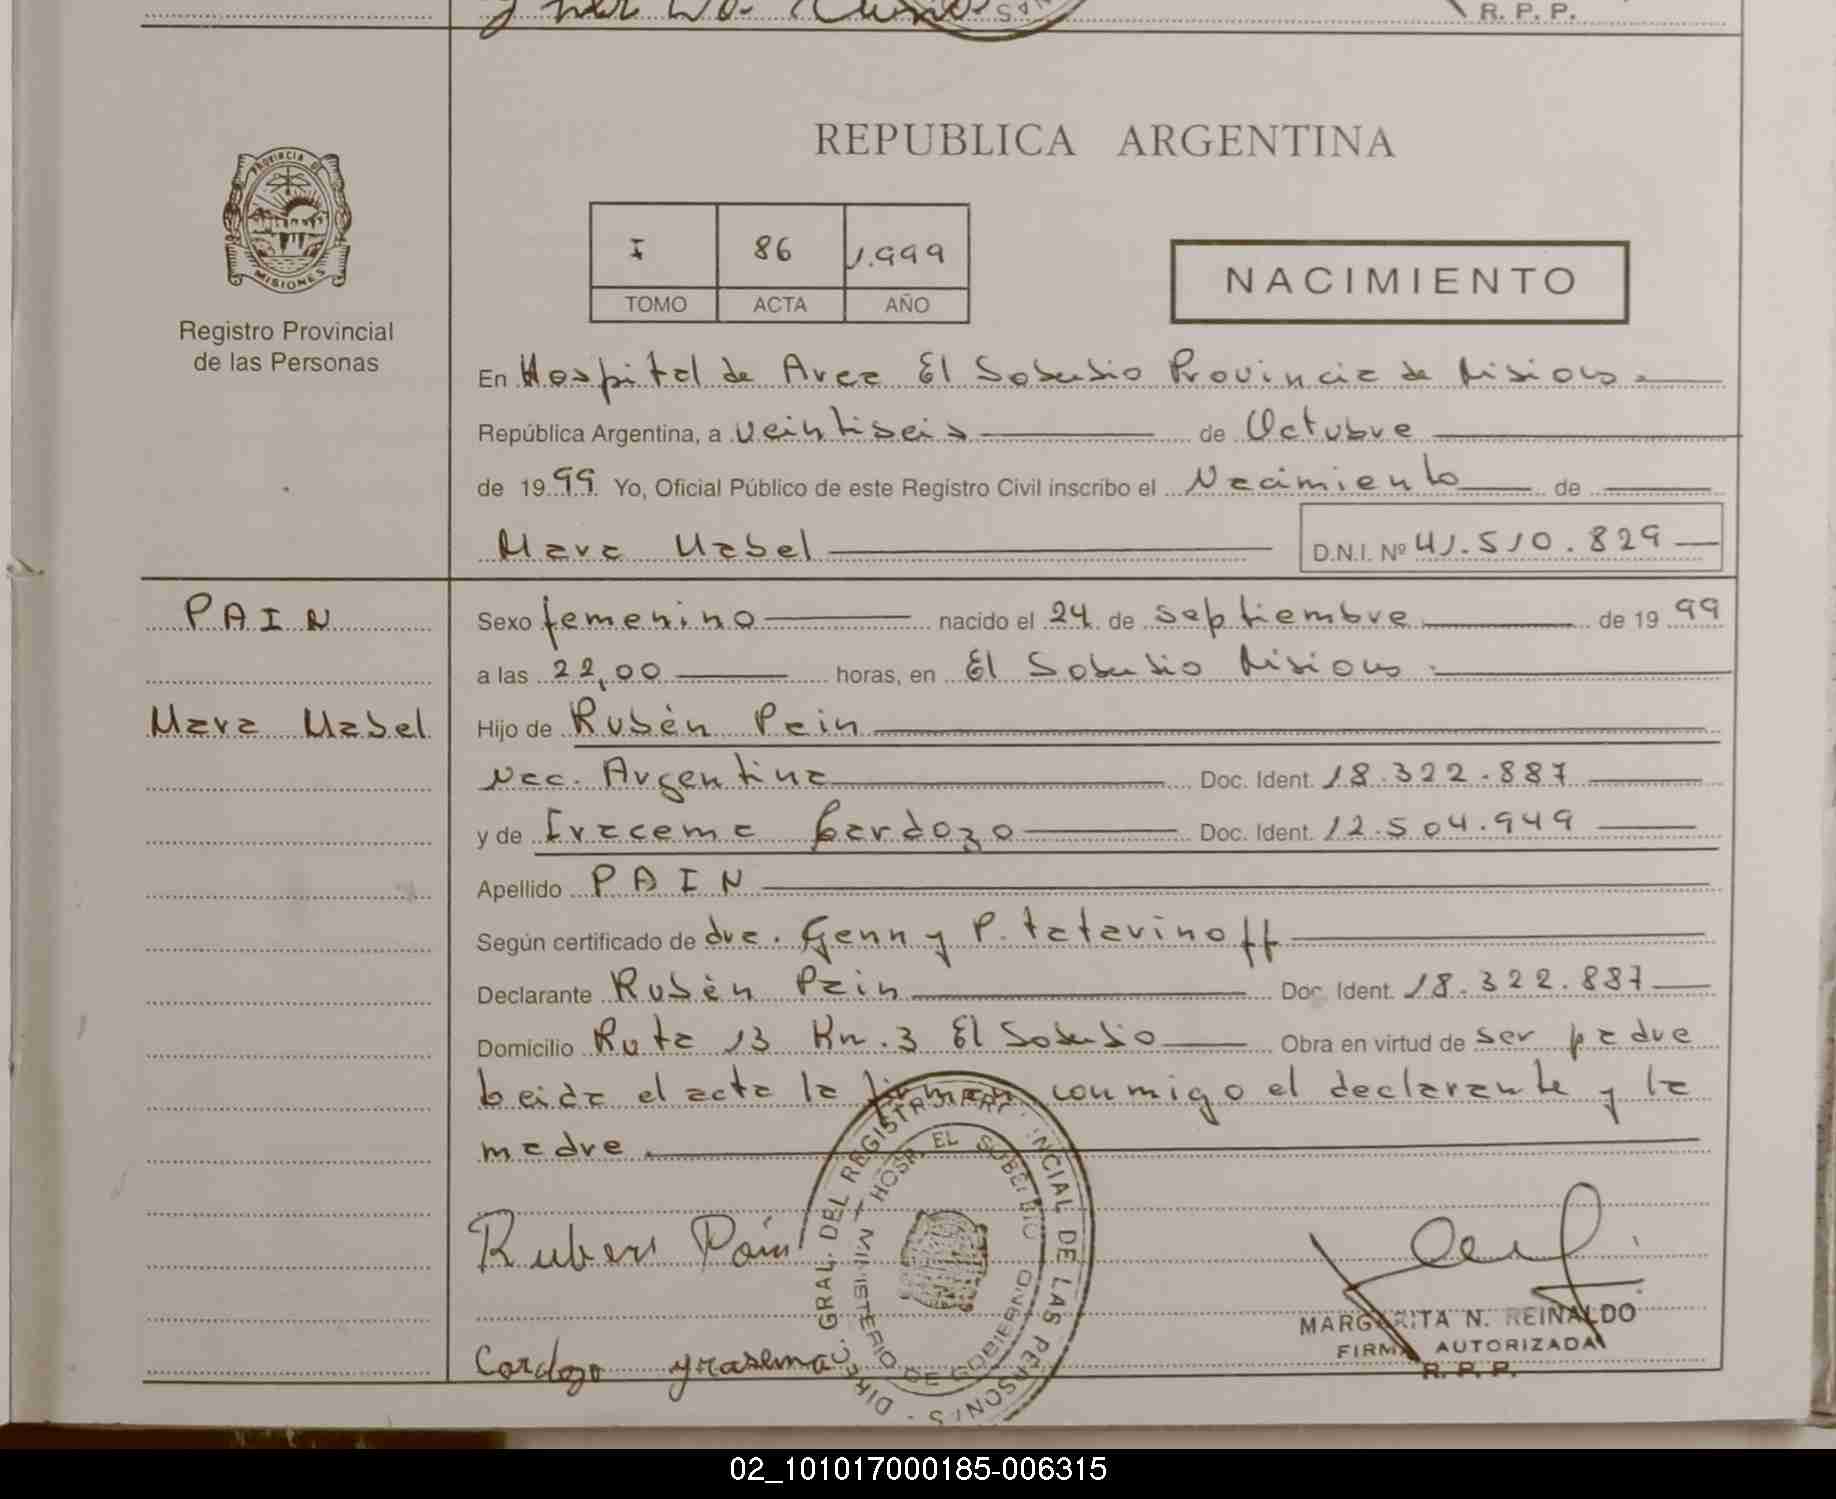 R. P. P.
REPUBLICA ARGENTINA
PROVINCIA DE
MISIONES
Registro Provincial
de las Personas
I 86 1.999
TOMO ACTA AÑO
NACIMIENTO
En Hospital de Area El Soberbio Provincia de Misiones.
República Argentina, a veintiseis de Octubre
de 1999. Yo, Oficial Público de este Registro Civil inscribo el Nacimiento de
Mara Mabel D.N.I. Nº 41.510.829
PAIN
Sexo femenino nacido el 24 de septiembre de 1999
a las 22,00 horas, en El Soberbio Misiones.
Mara Mabel
Hijo de Rubén Pain
Nac. Argentina Doc. Ident. 18.322.887
y de Iracema Cardozo Doc. Ident. 12.504.949
Apellido PAIN
Según certificado de dra. Genny P. Tatarinoff
Declarante Rubén Pain Doc. Ident. 18.322.887
Domicilio Ruta 13 Km. 3 El Soberbio Obra en virtud de ser padre
Leida el acta la firman conmigo el declarante y la
madre.
Ruben Pain
Cardozo yrasema
DIREC. GRAL. DEL REGISTRO PROVINCIAL DE LAS PERSONAS
HOSP. EL SOBERBIO
MINISTERIO DE GOBIERNO
MARGARITA N. REINALDO
FIRMA AUTORIZADA
R. P. P.
02_101017000185-006315